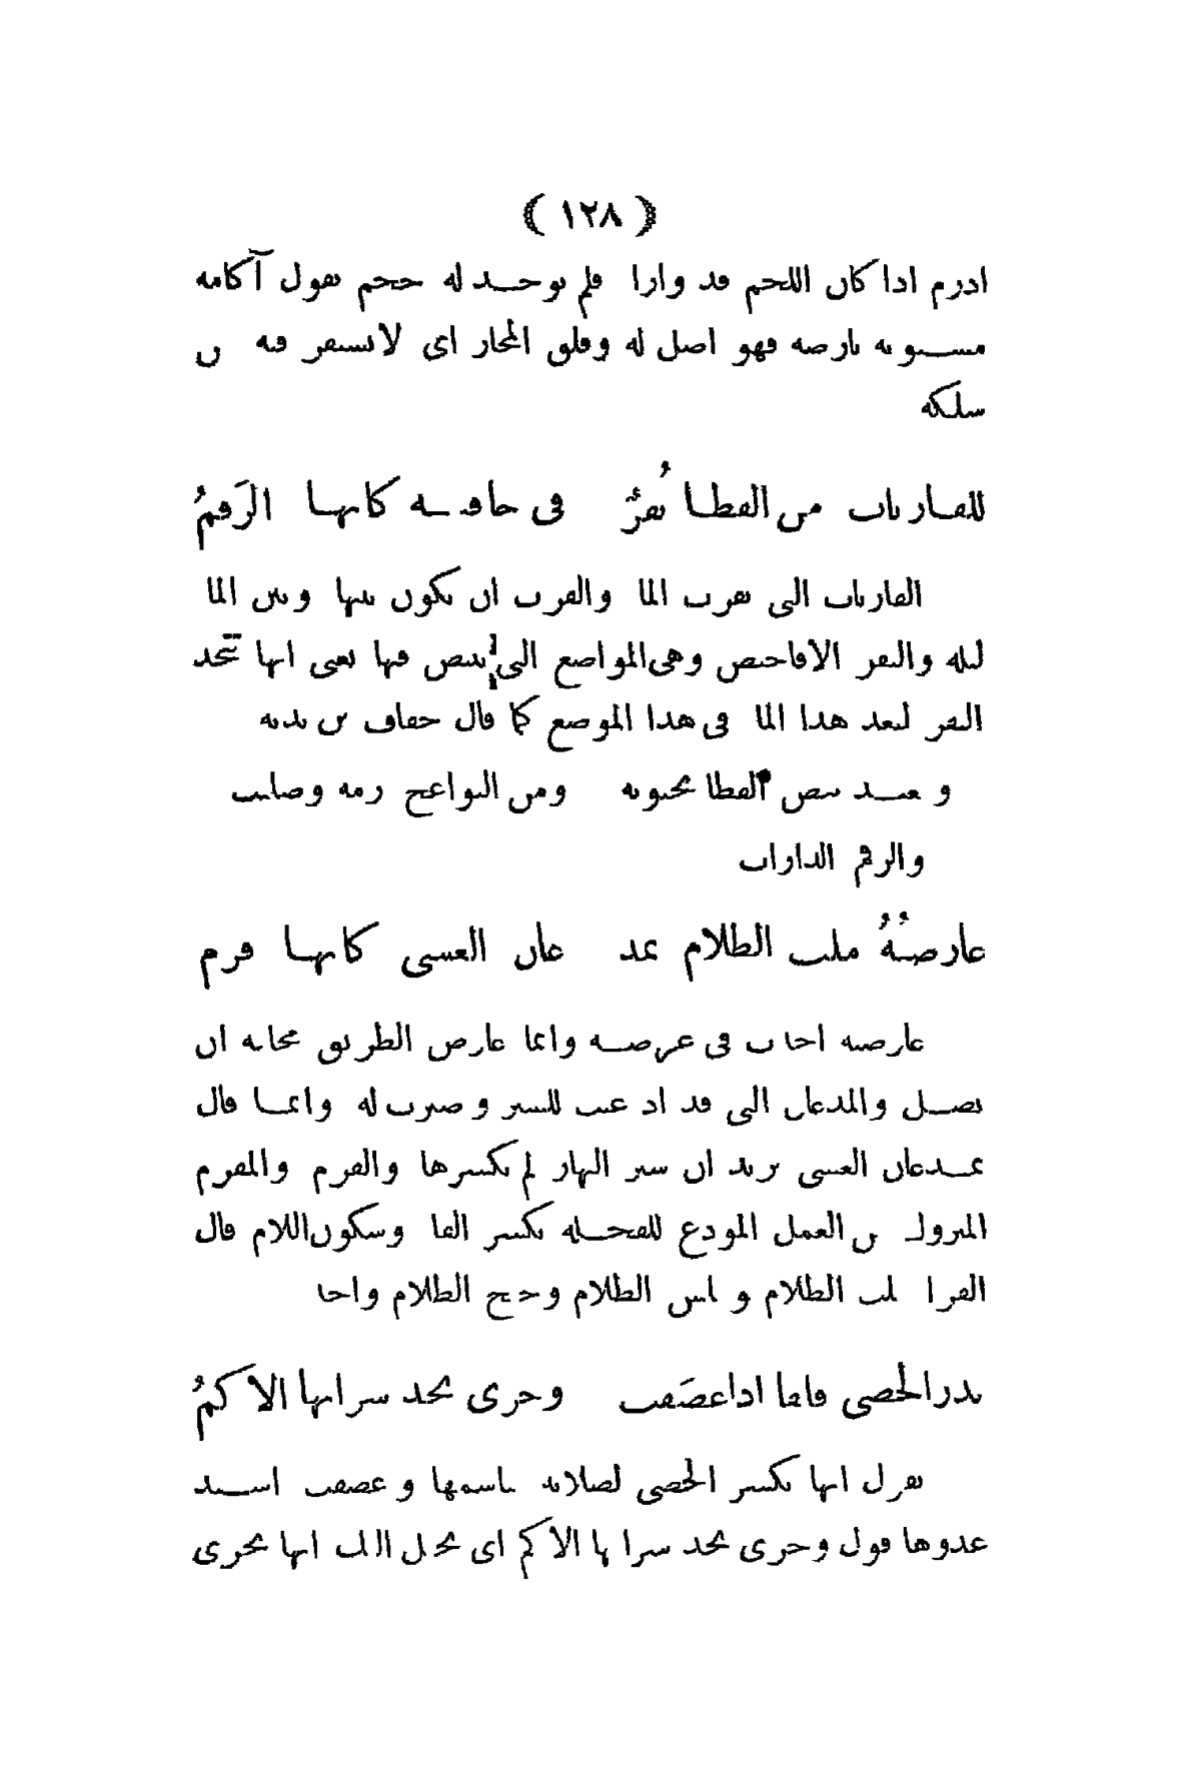 ﴿ ١٢٨ ﴾
ادرم اذا كان اللحم قد واراه فلم يوجد له حجم يقول آكامه
مستوية بارضه فهو اضل له وقلق المحار اى لا يستقر فيه من
سلكه
للقاربات من القطا نُقَرٌ فى حافتيه كانها الرَقمُ
القاربات التى تقرب الماء والقرب ان يكون بينها وبين الماء
ليلة والنقر الافاحيص وهى المواضع التى تبيض فيها يعنى انها تتخذ
النقر لبعد هذا الماء فى هذا الموضع كما قال خفاف بن ندبة
وعند بيض القطا يحبونه ومن النواعج رمة وصليب
والرقم الدارات
عارضتُهُ ملث الظلام بمذ عان العشى كانها قرم
عارضته اخذت فى عرضه وانما عارض الطريق مخافة ان
يضل والمذعان التى قد اذعنت للسير وضربت له وانما قال
بمذعان العشى يريد ان سير النهار لم يكسرها والقرم والمقرم
المتروك من العمل المودع للفحلة بكسر الفاء وسكون اللام قال
الفراء ملث الظلام وملس الظلام وجنح الظلام واحد
تذر الحصى فلقا اذا عصَفت وجرى بحد سرابها الاكمُ
يقول انها تكسر الحصى لصلابة مناسمها وعصفت اشتد
عدوها قوله وجرى بحد سرابها الاكم اى يخيل اليك انها تجرى